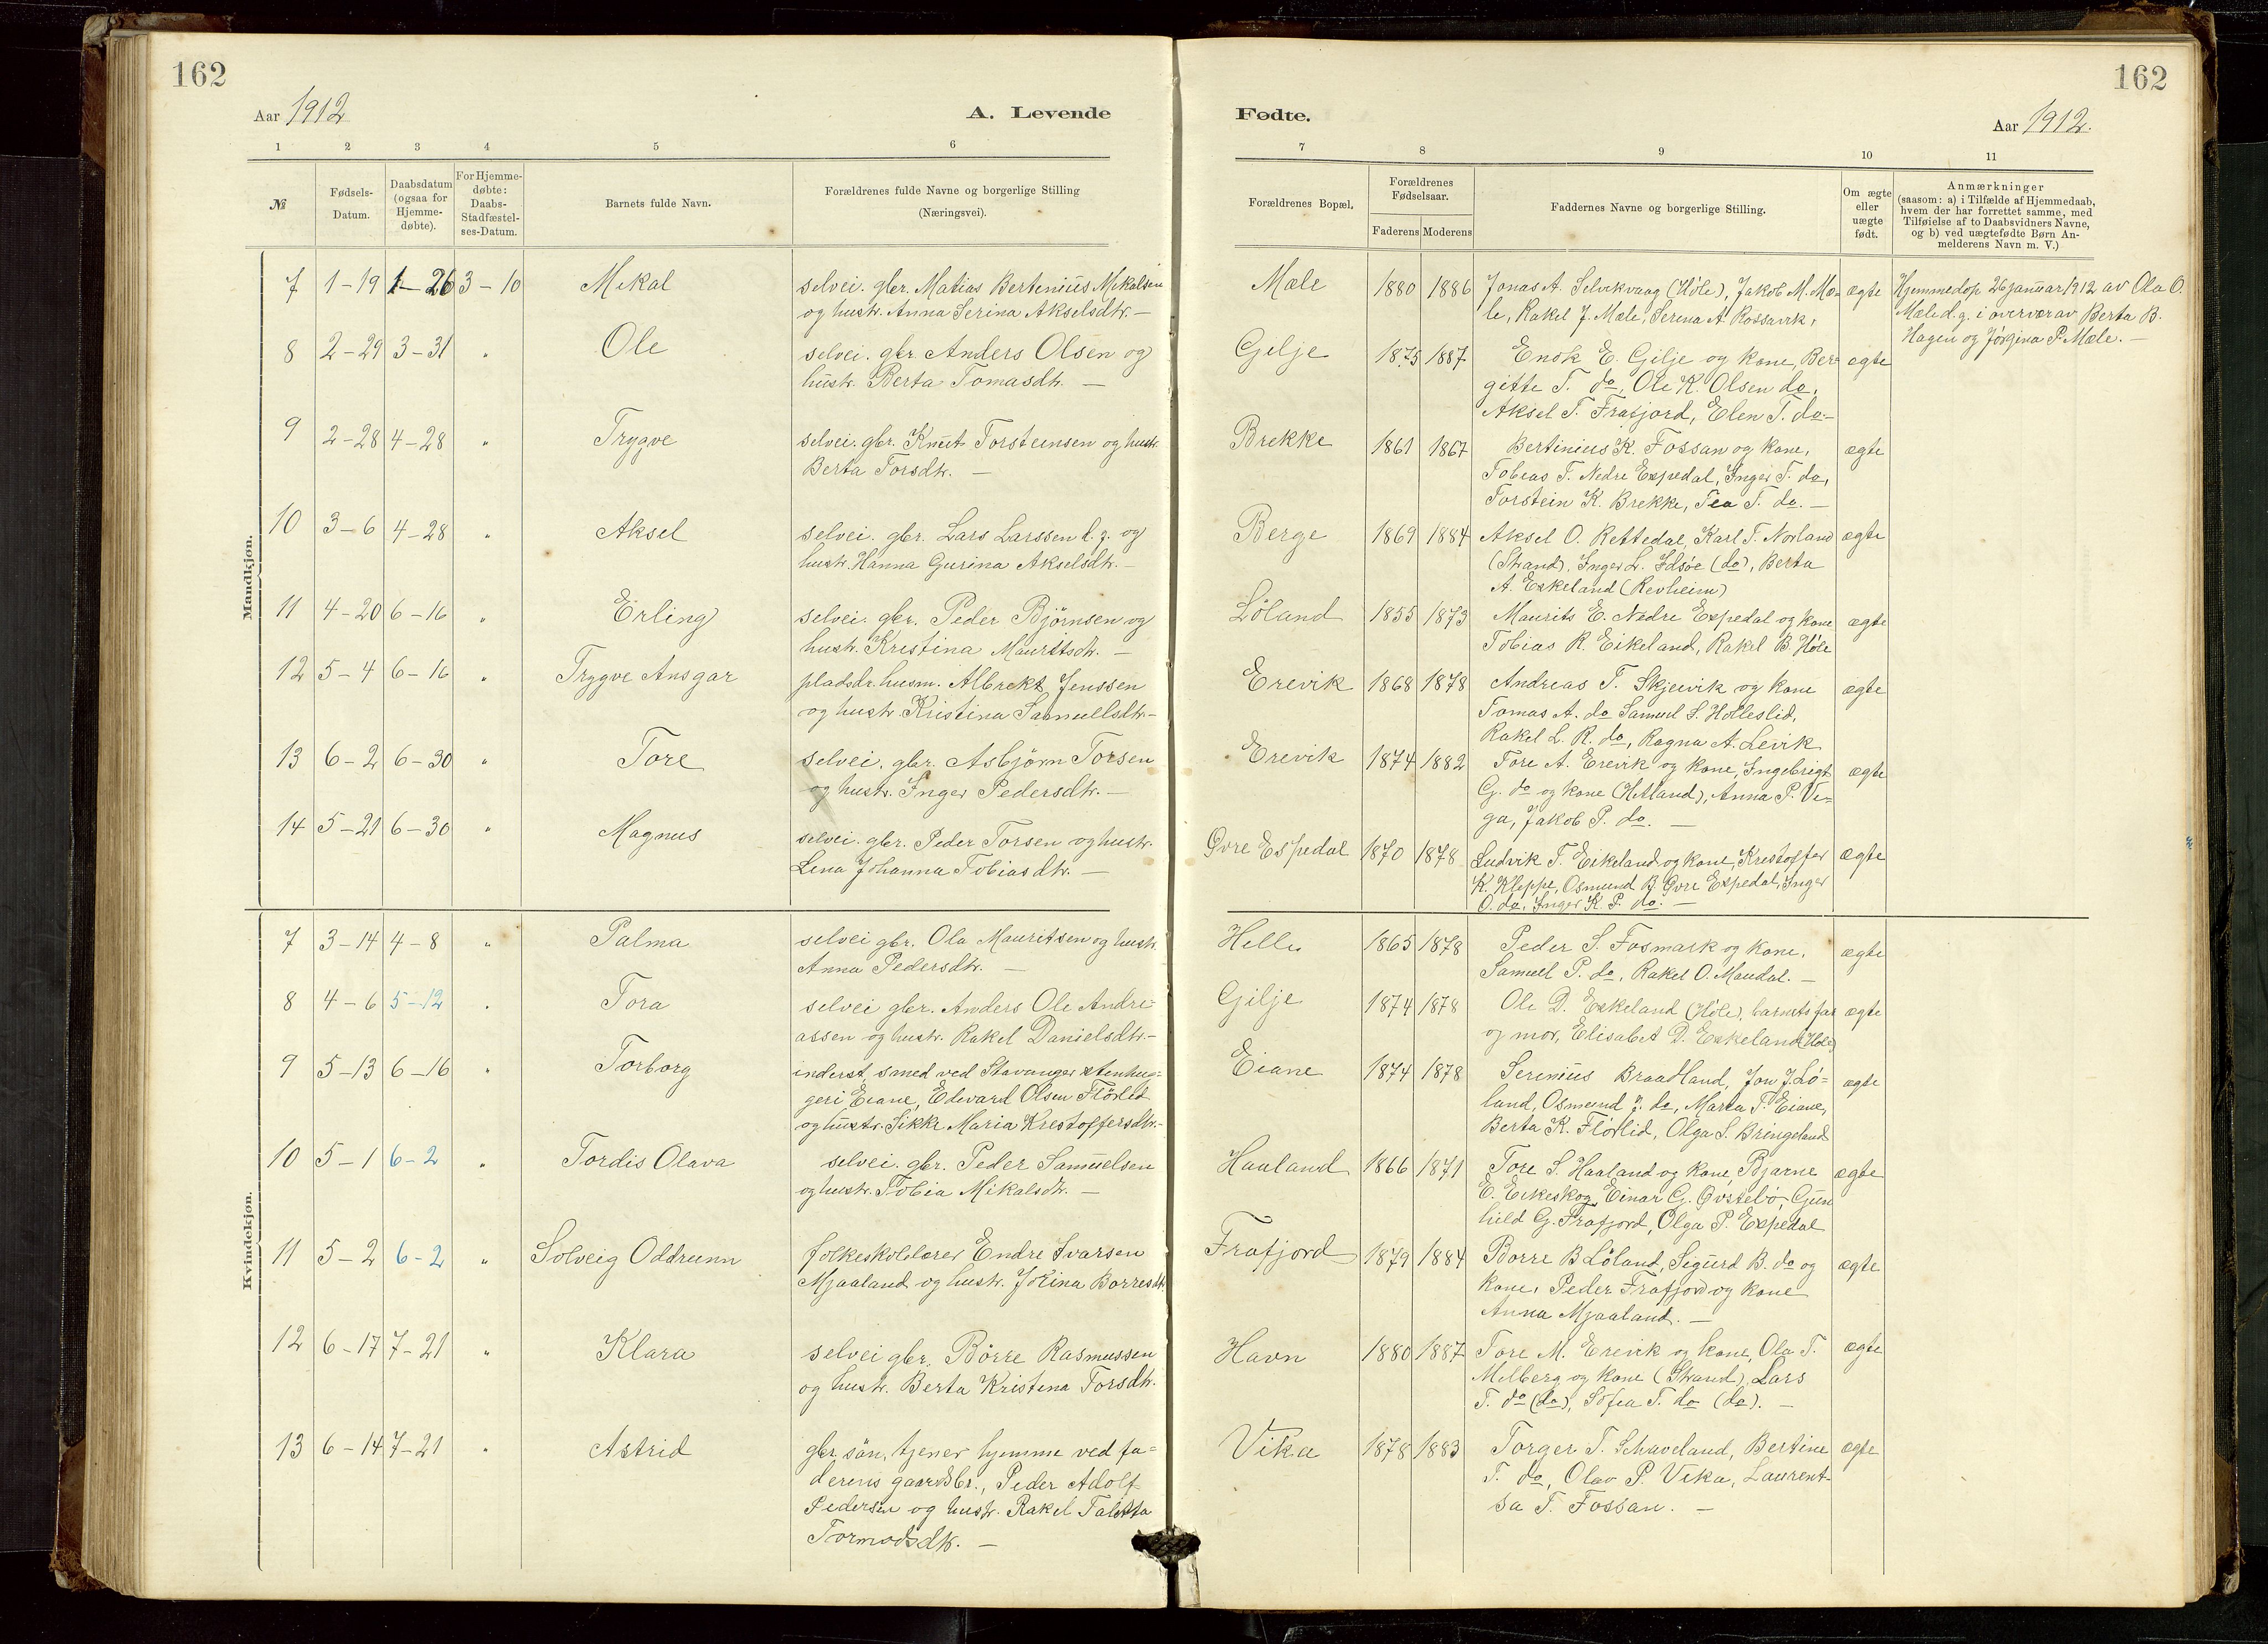 162
Aar 1912
A. Levende
1 2 3 4 5 6
№
Fødsels-
Datum.
Daabsdatum
(ogsaa for
Hjemme-
døbte).
For Hjemme-
døbte:
Daabs-
Stadfæstel-
ses-Datum.
Barnets fulde Navn.
Forældrenes fulde Navne og borgerlige Stilling
(Næringsvei).
Mandkjøn.
7 1-19 1-26 3-10 Mikal
selvei. gbr. Matias Bertinius Mikalsen
og hustr. Anna Serina Akselsdtr. —
8 2-29 3-31 " Ole
selvei. gbr Anders Olsen og
hustr. Berta Tomasdtr. —
9 2-28 4-28 " Trygve
selvei. gbr. Knut Torsteinsen og hustr.
Berta Torsdtr. —
10 3-6 4-28 " Aksel
selvei. gbr. Lars Larssen d.y. og
hustr. Hanna Gurina Akselsdtr. —
11 4-20 6-16 " Erling
selvei. gbr. Peder Bjørnsen og
hustr. Kristina Mauritsdtr. —
12 5-4 6-16 " Trygve Ansgar
pladsdr. husm. Albrekt Jenssen
og hustr. Kristina Samuelsdtr. —
13 6-2 6-30 " Tore
selvei. gbr. Asbjørn Torsen
og hustr. Inger Pedersdtr. —
14 5-21 6-30 " Magnus
selvei. gbr. Peder Torsen og hustr.
Lena Johanna Tobiasdtr. —
Kvindekjøn.
7 3-14 4-8 " Palma
selvei gbr. Ola Mauritsen og hustr.
Anna Pedersdtr. —
8 4-6 5-12 " Tora
selvei gbr. Anders Ole Andre-
assen og hustr. Rakel Danielsdtr. —
9 5-13 6-16 " Torborg
inderst, smed ved Stavanger stenhug-
geri Eiane, Edvard Olsen Flørlid
og hustr. Sikke Maria Kristoffersdtr. —
10 5-1 6-2 " Tordis Olava
selvei. gbr. Peder Samuelsen
og hustr. Tobia Mikalsdtr. —
11 5-2 6-2 " Solveig Oddrunn
folkeskolelærer Endre Ivarsen
Mjaaland og hustr. Jokina Borresdtr.
12 6-17 7-21 " Klara
selvei gbr. Børre Rasmussen
og hustr. Berta Kristena Torsdtr.
13 6-14 7-21 " Astrid
gbr. søn, tjener hjemme ved fa-
derens gaardsbr., Peder Adolf
Pedersen og hustr. Rakel Taletta
Tormodsdtr. —
162
Fødte.
Aar 1912.
7 8 9 10 11
Forældrenes Bopæl.
Forældrenes
Fødselsaar.
Faderens Moderens
Faddernes Navne og borgerlige Stilling.
Om ægte
eller
uægte
født.
Anmærkninger
(saasom: a) i Tilfælde af Hjemmedaab,
hvem der har forrettet samme, med
Tilføielse af to Daabsvidners Navne,
og b) ved uægtefødte Børn An-
melderens Navn m. V.)
Mæle 1880 1886 Jonas A. Selvikvaag (Høle), Jakob M. Mæ- ægte
le, Rakel J. Mæle, Serena A. Rossavik,
Hjemmedøp 26 januar 1912 av Ola O.
Mæle d.y. i overvær av Berta B.
Hagen og Jørgina P. Mæle. —
Gilje 1875 1887 Enok E. Gilje og kone, Ber- ægte
gitte T. do, Ole K. Olsen do,
Aksel T. Frafjord, Elen T. do. —
Brekke 1861 1867 Bertinius K. Fossan og kone, ægte
Tobias T. Nedre Espedal, Inger T. do,
Torstein K. Brekke, Tea T. do. —
Berge 1869 1884 Aksel O. Rettedal, Karl T. Norland ægte
(Strand), Inger L. Idsøe (do), Berta
A. Eskeland (Revheim)
Løland 1855 1873 Maurits E. Nedre Espedal og kone ægte
Tobias R. Eikeland, Rakel B. Høle
Erevik 1868 1878 Andreas T. Skjeivik og kone ægte
Tomas A. do Samuel S. Holleslid,
Rakel L. R. do, Ragna A. Levik
Erevik 1874 1882 Tore A. Erevik og kone, Ingebrigt ægte
G. do og kone (Hetland), Anna P. Ve-
ga, Jakob P. do. —
Øvre Espedal 1870 1878 Ludvik T. Eikeland og kone, Kristoffer ægte
K. Kleppe, Osmund B. Øvre Espedal, Inger
O. do, Inger K. P. do. —
Helle 1865 1878 Peder S. Fosmark og kone, ægte
Samuel P. do, Rakel O. Maudal. —
Gilje 1874 1878 Ole D. Eskeland (Høle), barnets far ægte
og mor, Elisabet D. Eskeland (Høle)
Eiane 1874 1878 Serinius Braadland, Jon J. Lø- ægte
land, Osmund J. do, Marta T. Eiane,
Berta K. Flørlid, Olga S. Bringeland
Haaland 1866 1871 Tore S. Haaland og kone, Bjarne ægte
E. Eikeskog, Einar G. Øvstebø, Gun
hild G. Frafjord, Olga P. Espedal
Frafjord 1879 1884 Borre B Løland, Sigurd B. do og ægte
kone, Peder Frafjord og kone
Anna Mjaaland. —
Havn 1880 1887 Tore M. Erevik og kone, Ola T. ægte
Melberg og kone (Strand), Lars
T. do (do), Sofia T. do (do). —
Vika 1878 1883 Torger T. Schaveland, Bertine ægte
T. do, Olav P. Vika, Laurent-
sa T. Fossan. —